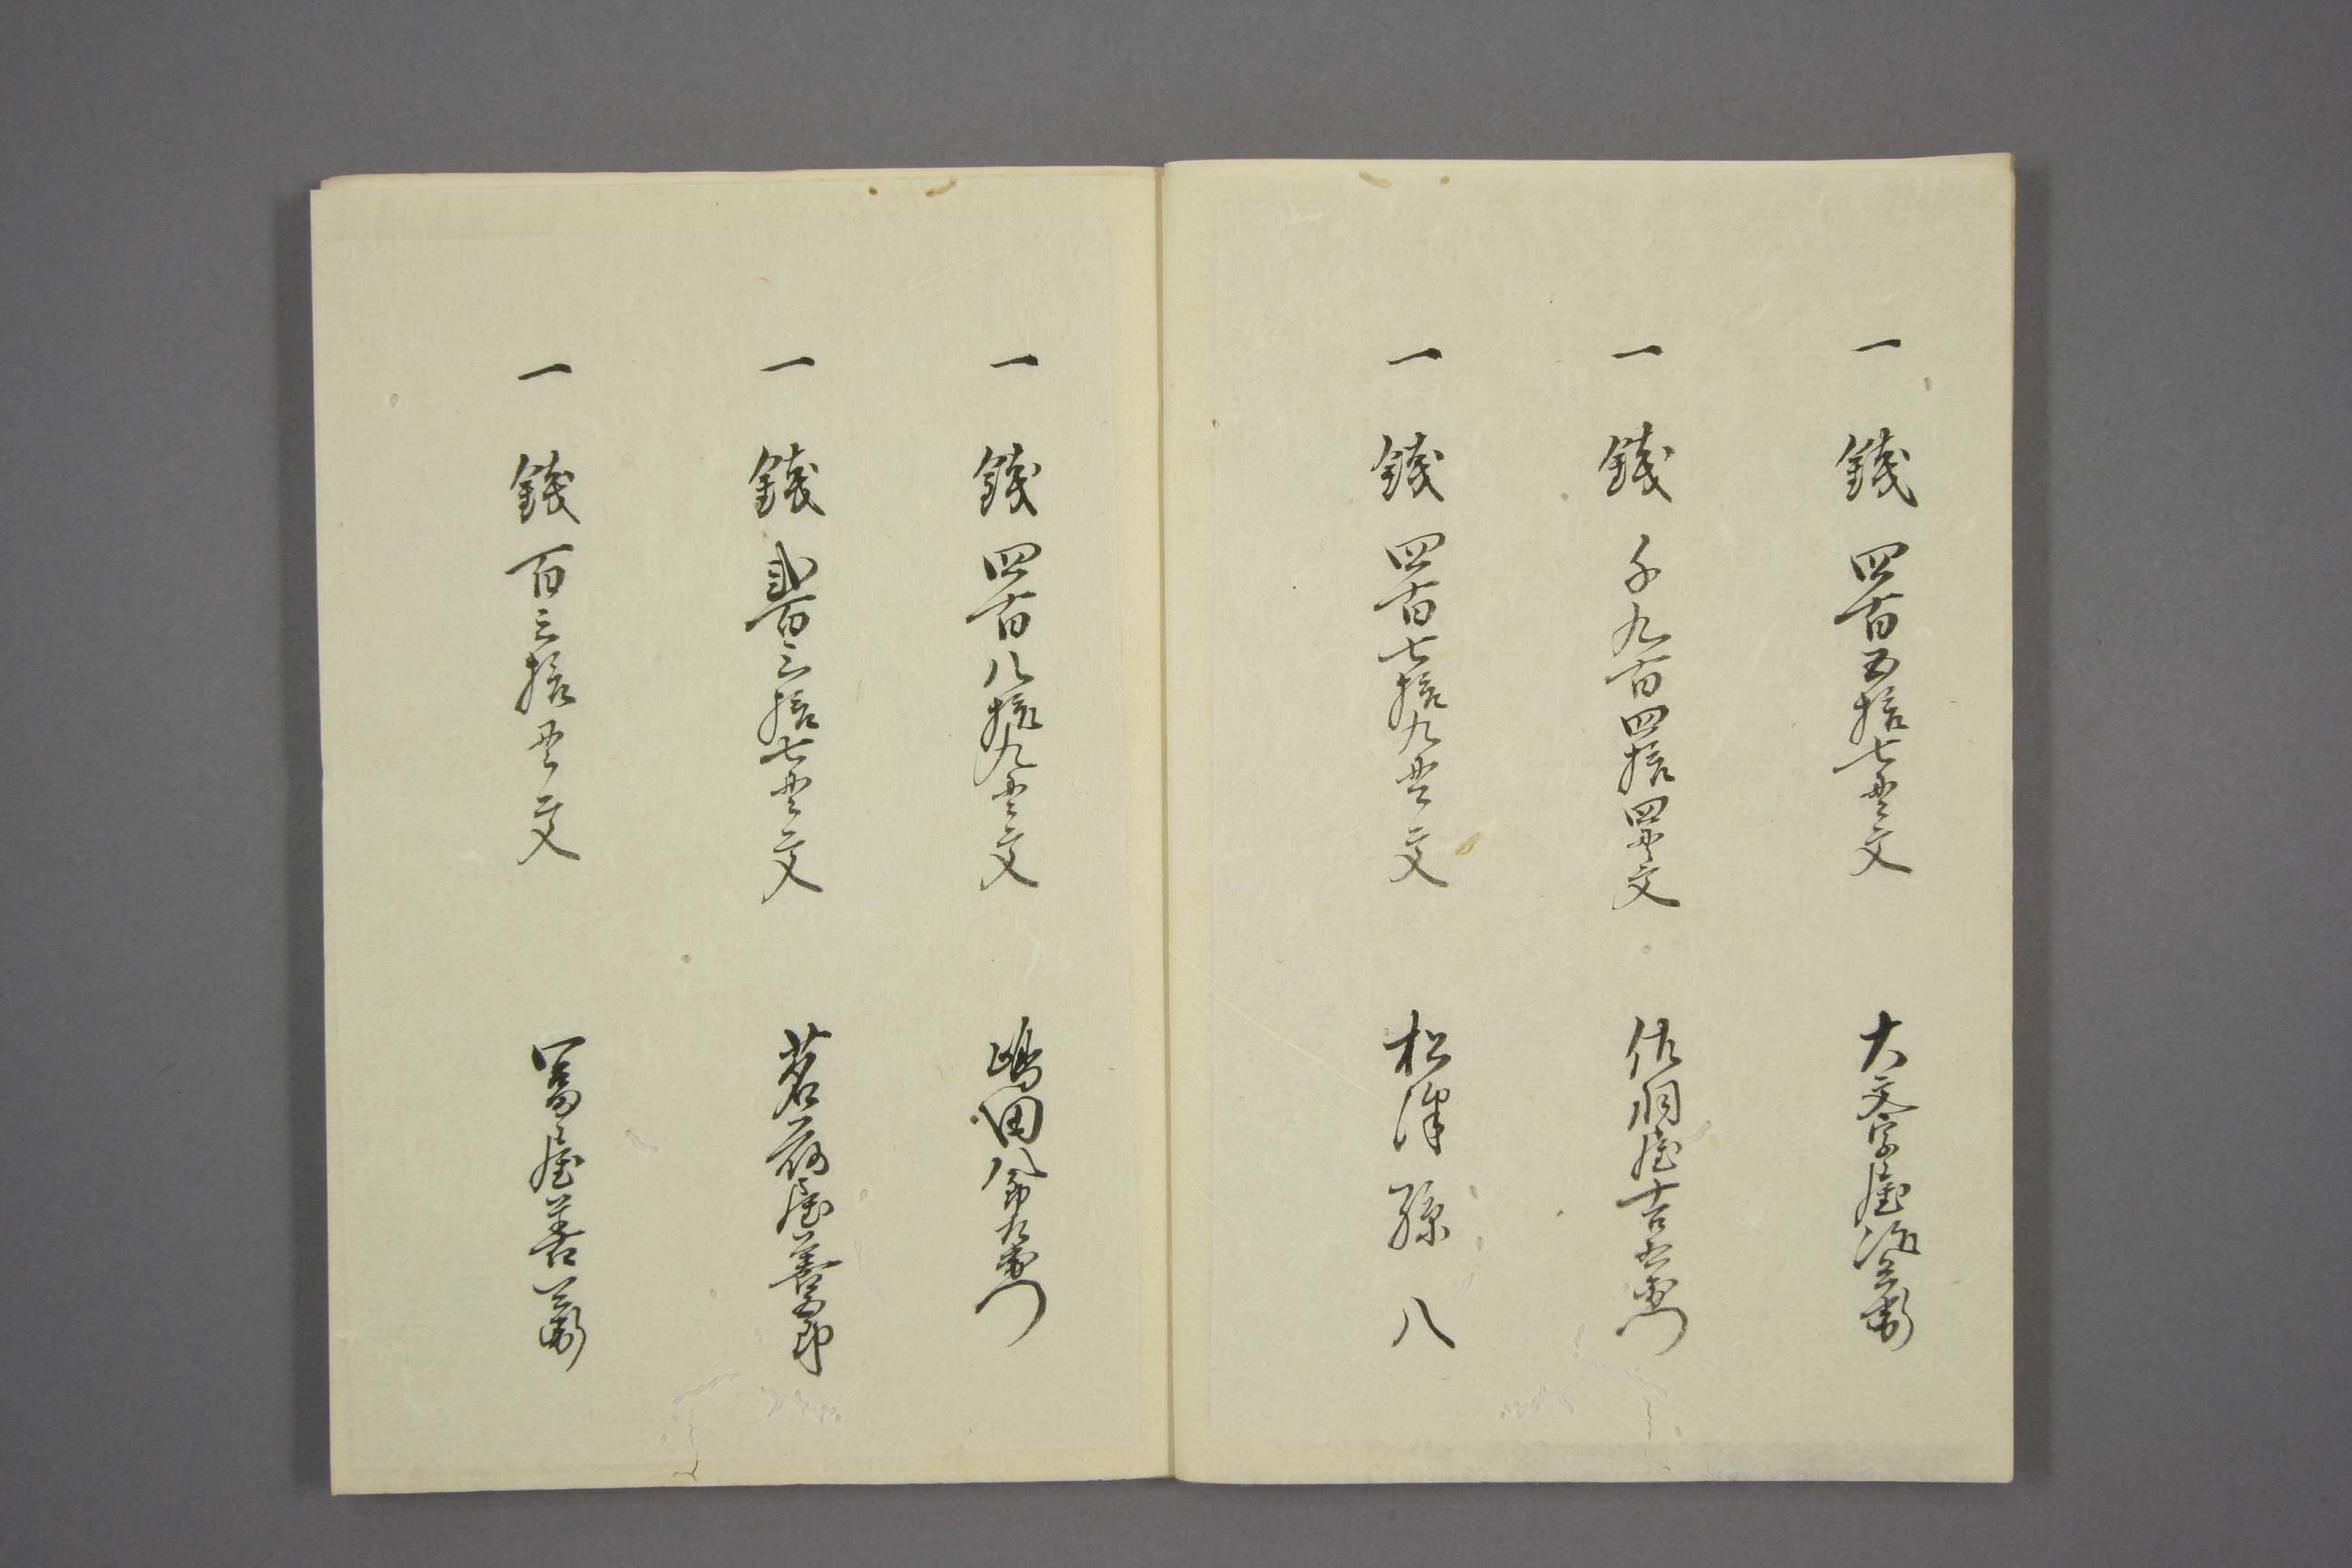 一 銭 四百五拾七貫文 大文字屋治兵衛
一 銭 千九百四拾四貫文 佐羽屋吉右衛門
一 銭 四百七拾九貫文 松澤孫八
一 銭 四百八拾九貫文 嶋田八郎左衛門
一 銭 弐百三拾七貫文 茗荷屋善五郎
一 銭 百三拾貫文 冨屋善兵衛